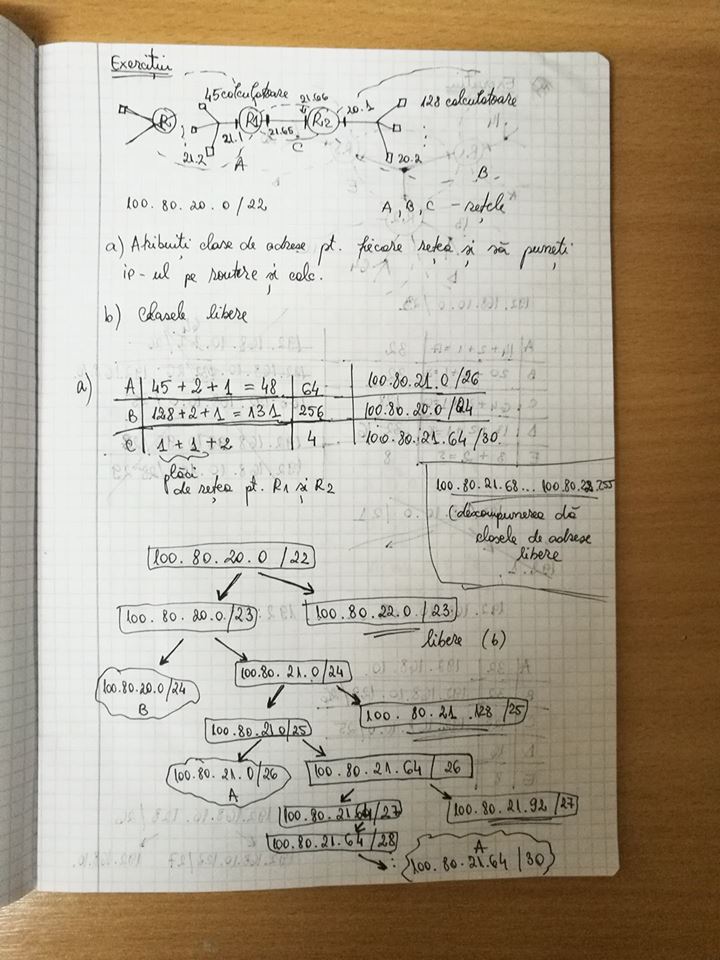 Exerciții
45 calculatoare
21.66
20.1
128 calculatoare
R
R1
R2
21.1
21.65
21.2
A
C
20.2
B
100.80.20.0/22
A, B, C - rețele
a) Atribuiți clase de adrese pt. fiecare rețea și să puneți
ip-ul pe routere și calc.
b) Clasele libere
a)
A 45 + 2 + 1 = 48 64 100.80.21.0/26
B 128+2+1 = 131 256 100.80.20.0/24
C 1 + 1 + 2 4 100.80.21.64/30
plăci
de rețea pt. R1 și R2
100.80.21.68...
descompunerea dă
clasele de adrese
libere
100.80.20.0/22
100.80.20.0/23
100.80.22.0/23
libere (b)
100.80.20.0/24
B
100.80.21.0/24
100.80.21.128/25
100.80.21.0/25
100.80.21.0/26
A
100.80.21.64/26
100.80.21.64/27
100.80.21.92/27
100.80.21.64/28
A
100.80.21.64/30